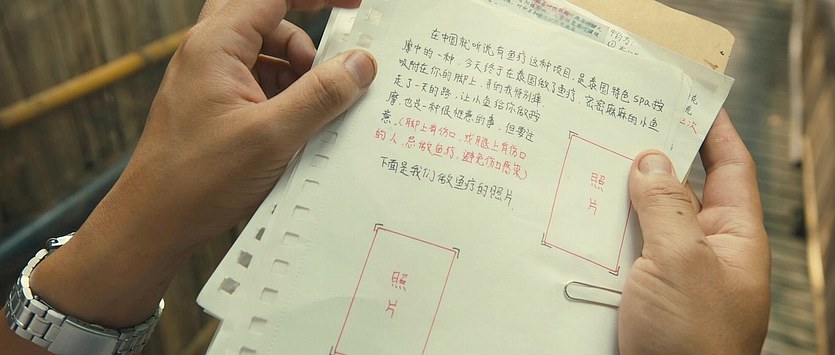 在中国就听说有鱼疗这种项目,是泰国特色spa按
摩中的一种,今天终于在泰国做了鱼疗,密密麻麻的小鱼
吸附在你的脚上,弄的我特别痒,
走了一天的路,让小鱼给你做按
摩,也是一种很惬意的事,但要注
意,(脚上有伤口,或腿上有伤口
的人,忌做鱼疗,避免伤口感染)
下面是我们做鱼疗的照片
照
片
照
片